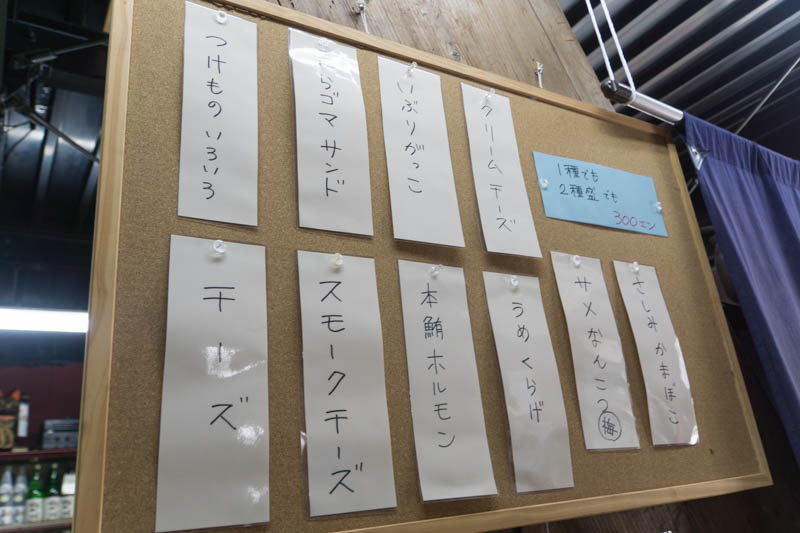 1種でも
2種盛でも
300エン
クリームチーズ
いぶりがっこ
たらゴマサンド
つけもの いろいろ
さしみかまぼこ
サメなんこつ梅
うめくらげ
本鮪ホルモン
スモークチーズ
チーズ